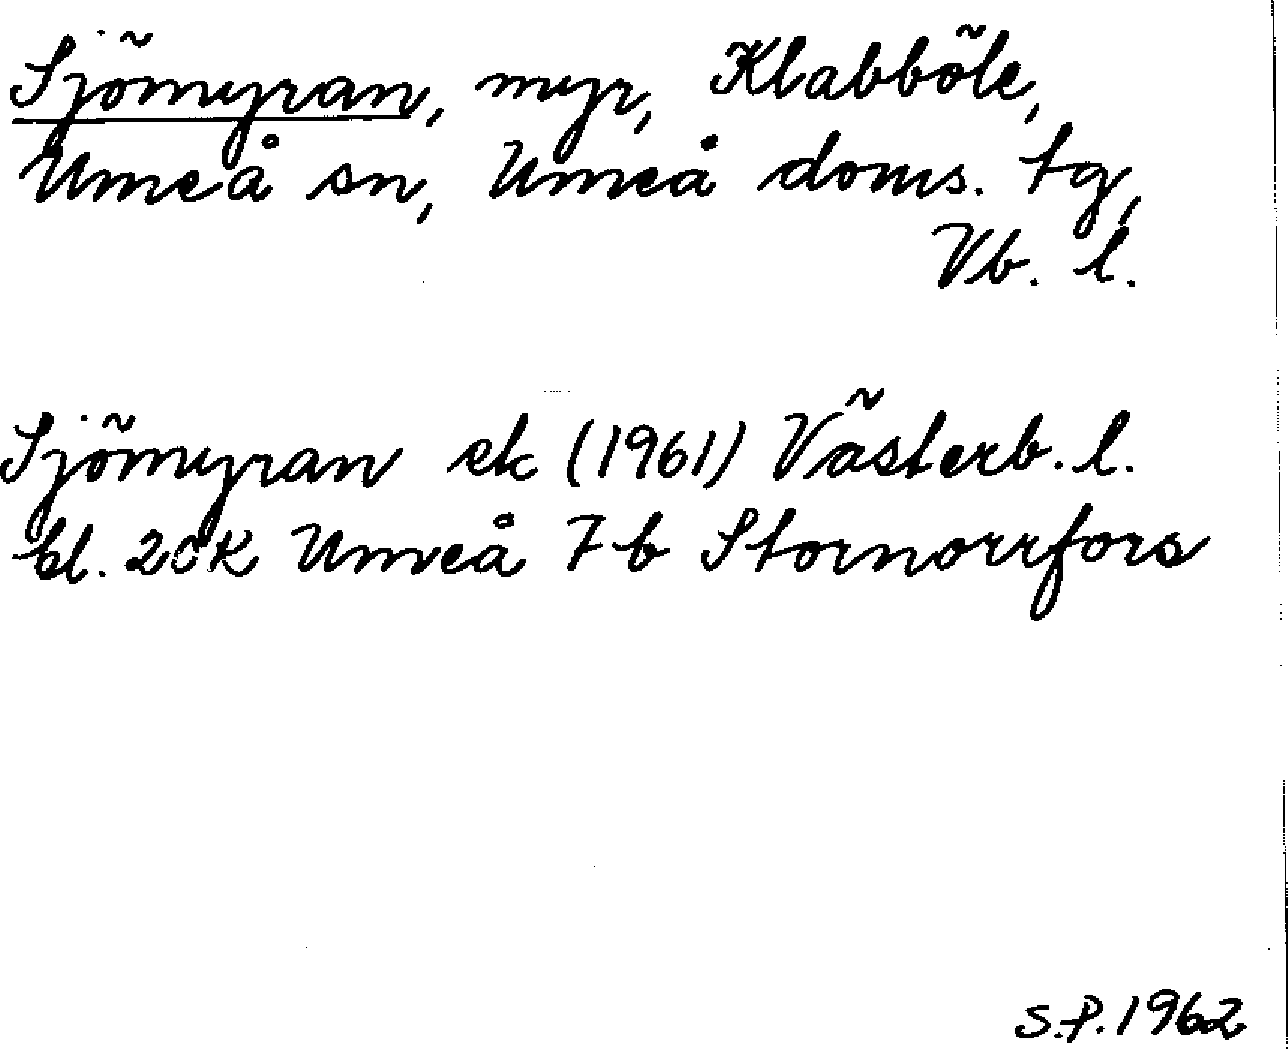 Sjömyran, myr, Klabböle,
Umeå sn, Umeå doms. tg,
Vb. l.
Sjömyran ek (1961) Västerb. l.
bl. 20K Umeå 7b Stornorrfors
S.P. 1962